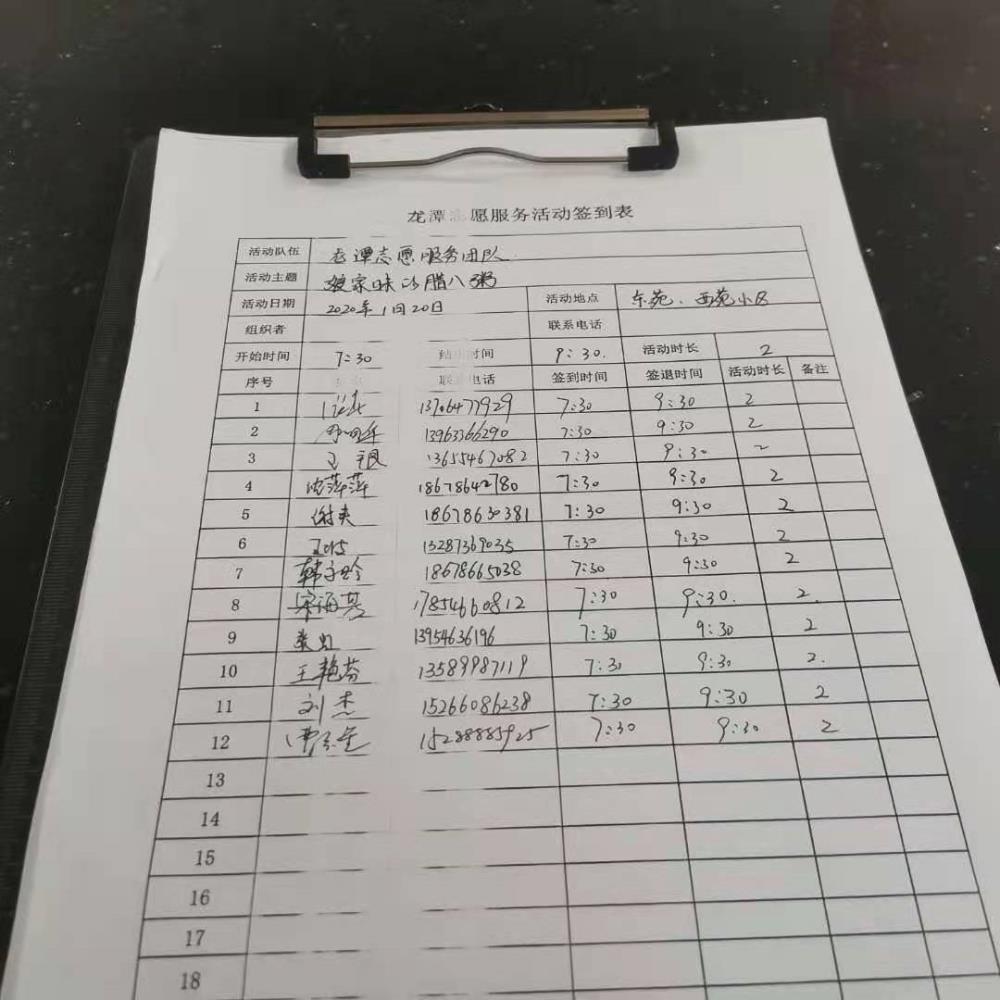 龙潭志愿服务活动签到表
活动队伍 龙潭志愿服务团队
活动主题 娘家味的腊八粥
活动日期 2020年1月20日 活动地点 东苑、西苑小区
组织者 联系电话
开始时间 7:30 结束时间 9:30. 活动时长 2
序号 联系电话 签到时间 签退时间 活动时长 备注
1 13706477929 7:30 9:30 2
2 13963366290 7:30 9:30 2
3 13655467082 7:30 9:30 2
4 沈萍萍 18678642780 7:30 9:30 2
5 谢夫 18678630381 7:30 9:30 2
6 15287369035 7:30 9:30 2
7 韩玲 18678665038 7:30 9:30 2
8 宋海燕 17854660812 7:30 9:30. 2.
9 13954636196 7:30 9:30 2
10 王艳芬 13589987119 7:30 9:30 2.
11 刘杰 15266086238 7:30 9:30 2
12 15288885925 7:30 9:30 2
13
14
15
16
17
18